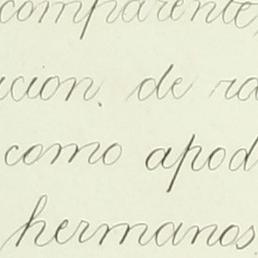 comparente,
ucion de ra
como apod
hermanos